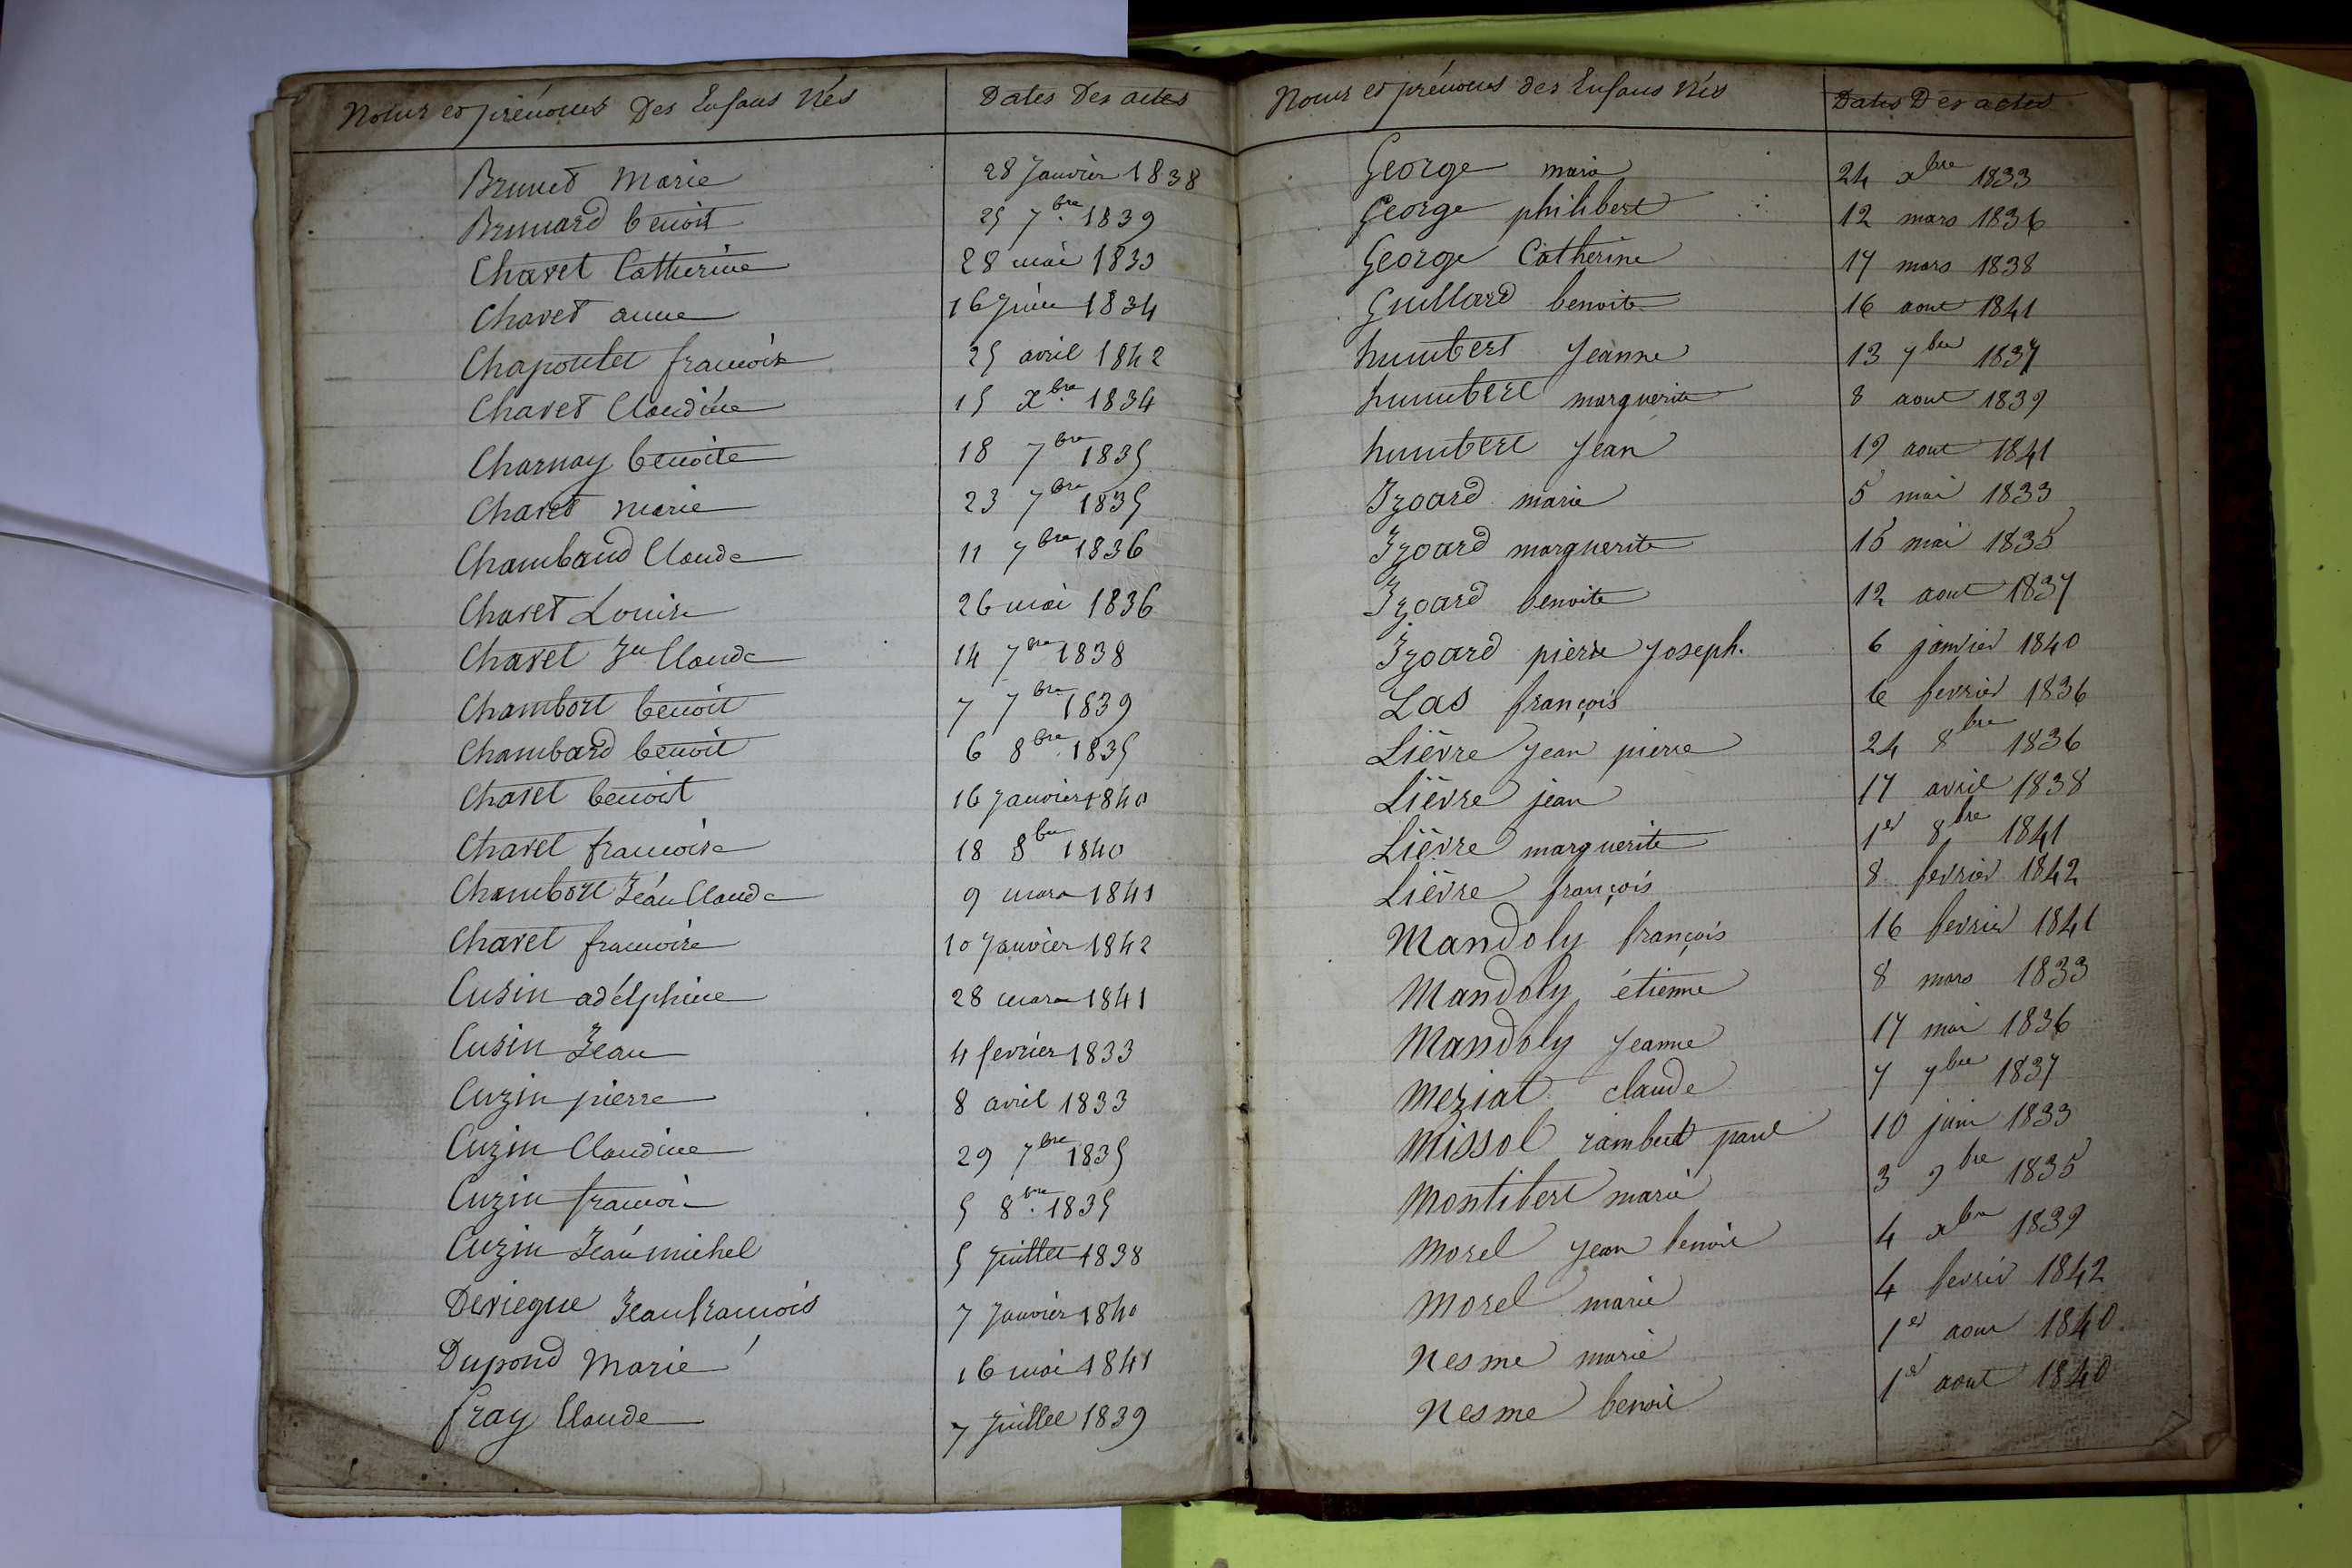 Noms et prénoms Des Enfans Nés Dates Des actes
Brunet Marie 28 Janvier 1838
Brunard benoit 25 7bre 1839
Chavet Catherine 28 mai 1833
Chavet anne 16 Juin 1834
Chapoutet francois 25 avril 1842
Chavet Claudine 15 Xbre 1834
Charnay benoite 18 7bre 1835
Chavet Marie 23 7bre 1835
Chambaud Claude 11 7bre 1836
Chavet Louise 26 mai 1836
Chavet Jn Claude 14 7bre 1838
Chambort benoit 7 7bre 1839
Chambard benoit 6 8bre 1835
Chavet benoit 16 Janvier 1840
Chavet francoise 18 8bre 1840
Chambort Jean Claude 9 mars 1841
Chavet francoise 10 Janvier 1842
Cusin adélphine 28 mars 1841
Cusin Jean 4 fevrier 1833
Cuzin pierre 8 avril 1833
Cuzin Claudine 29 7bre 1835
Cuzin francois 5 8bre 1835
Cuzin Jean michel 5 Juillet 1838
Deviegue Jean francois 7 Janvier 1840
Dupond Marie 16 mai 1841
fray Claude 7 Juillet 1839
Noms et prénoms des Enfans Nés Dates Des actes
George marie 24 xbre 1833
George philibert 12 mars 1836
George Catherine 17 mars 1838
Guillard benoite 16 aout 1841
humbert Jeanne 13 7bre 1837
humbert marguerite 8 aout 1839
humbert Jean 19 aout 1841
Izoard marie 5 mai 1833
Izoard marguerite 15 mai 1835
Izoard benoite 12 aout 1837
Izoard pierre Joseph. 6 janvier 1840
Las françois 6 fevrier 1836
Lièvre Jean pierre 24 8bre 1836
Lièvre jean 17 avril 1838
Lièvre marguerite 1er 8bre 1841
Lièvre françois 8 fevrier 1842
Mandoly françois 16 fevrier 1841
Mandoly étienne 8 mars 1833
Mandoly Jeanne 17 mai 1836
Meziat claude 7 7bre 1837
Missol rambert paul 10 juin 1833
Montibert marie 3 9bre 1835
Morel Jean benoit 4 xbre 1839
Morel marie 4 fevrier 1842
Nesme marie 1er aout 1840
Nesme benoit 1er aout 1840